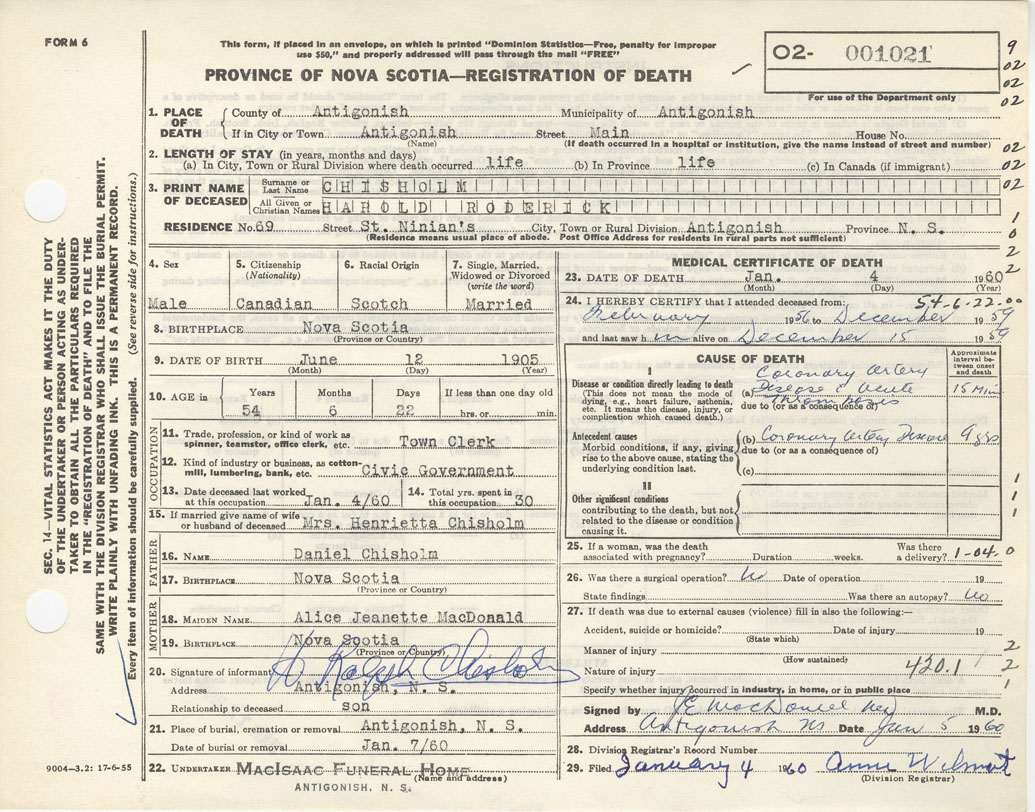 FORM 6
This form, if placed in an envelope, on which is printed "Dominion Statistics—Free, penalty for improper
use $50," and properly addressed will pass through the mail "FREE"
PROVINCE OF NOVA SCOTIA—REGISTRATION OF DEATH
02- 001021
For use of the Department only
9
02
02
02
1. PLACE OF DEATH { County of Antigonish Municipality of Antigonish
If in City or Town Antigonish Street Main House No.
(Name) (If death occurred in a hospital or institution, give the name instead of street and number)
2. LENGTH OF STAY (in years, months and days)
(a) In City, Town or Rural Division where death occurred life (b) In Province life (c) In Canada (if immigrant)
02
02
3. PRINT NAME OF DECEASED
Surname or Last Name CHISHOLM
All Given or Christian Names HAROLD RODERICK
02
RESIDENCE No. 69 Street St. Ninian's City, Town or Rural Division Antigonish Province N. S.
(Residence means usual place of abode. Post Office Address for residents in rural parts not sufficient)
1
0
2
2
4. Sex Male
5. Citizenship (Nationality) Canadian
6. Racial Origin Scotch
7. Single, Married, Widowed or Divorced (write the word) Married
8. BIRTHPLACE Nova Scotia
(Province or Country)
9. DATE OF BIRTH June 12 1905
(Month) (Day) (Year)
10. AGE in Years Months Days If less than one day old
54 6 22 hrs. or min.
OCCUPATION
11. Trade, profession, or kind of work as spinner, teamster, office clerk, etc. Town Clerk
12. Kind of industry or business, as cotton-mill, lumbering, bank, etc. Civic Government
13. Date deceased last worked at this occupation Jan. 4/60
14. Total yrs. spent in this occupation 30
15. If married give name of wife or husband of deceased Mrs. Henrietta Chisholm
FATHER
16. NAME Daniel Chisholm
17. BIRTHPLACE Nova Scotia
(Province or Country)
MOTHER
18. MAIDEN NAME Alice Jeanette MacDonald
19. BIRTHPLACE Nova Scotia
(Province or Country)
20. Signature of informant Ralph Chisholm
Address Antigonish, N. S.
Relationship to deceased son
21. Place of burial, cremation or removal Antigonish, N. S.
Date of burial or removal Jan. 7/60
22. UNDERTAKER MACISAAC FUNERAL HOME
(Name and address)
ANTIGONISH, N. S.
MEDICAL CERTIFICATE OF DEATH
23. DATE OF DEATH Jan. 4 1960
(Month) (Day) (Year)
24. I HEREBY CERTIFY that I attended deceased from: 54-6-22-00
February 1956 to December 1959
and last saw him alive on December 15 1959
CAUSE OF DEATH
Approximate interval between onset and death
I
Disease or condition directly leading to death
(This does not mean the mode of dying, e.g., heart failure, asthenia, etc. It means the disease, injury, or complication which caused death.)
(a) Coronary Artery Disease & Acute Thrombosis 15 Min
due to (or as a consequence of)
Antecedent causes
Morbid conditions, if any, giving rise to the above cause, stating the underlying condition last.
(b) Coronary Artery Disease 9 yrs
due to (or as a consequence of)
(c)
II
Other significant conditions
contributing to the death, but not related to the disease or condition causing it.
1
1
1
25. If a woman, was the death associated with pregnancy? Duration weeks. Was there a delivery? 1-04-0
26. Was there a surgical operation? No Date of operation 19
State findings Was there an autopsy? No
27. If death was due to external causes (violence) fill in also the following:—
Accident, suicide or homicide? Date of injury 19
(State which)
Manner of injury 2
(How sustained)
Nature of injury 420.1 2
Specify whether injury occurred in industry, in home, or in public place 1
Signed by JE MacDonell MD M.D.
Address Antigonish NS Date Jan 5 1960
28. Division Registrar's Record Number
29. Filed January 4 1960 Anne Wilmot
(Division Registrar)
SEC. 14—VITAL STATISTICS ACT MAKES IT THE DUTY
OF THE UNDERTAKER OR PERSON ACTING AS UNDER-
TAKER TO OBTAIN ALL THE PARTICULARS REQUIRED
IN THE "REGISTRATION OF DEATH" AND TO FILE THE
SAME WITH THE DIVISION REGISTRAR WHO SHALL ISSUE THE BURIAL PERMIT.
WRITE PLAINLY WITH UNFADING INK. THIS IS A PERMANENT RECORD.
Every item of information should be carefully supplied. (See reverse side for instructions.)
9004—3.2: 17-6-55